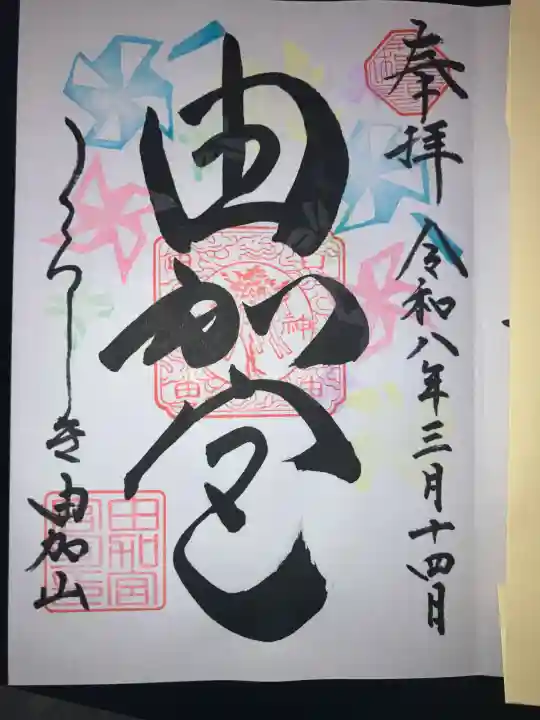 奉拝
令和八年三月十四日
由加宮
由加山
神
由
由